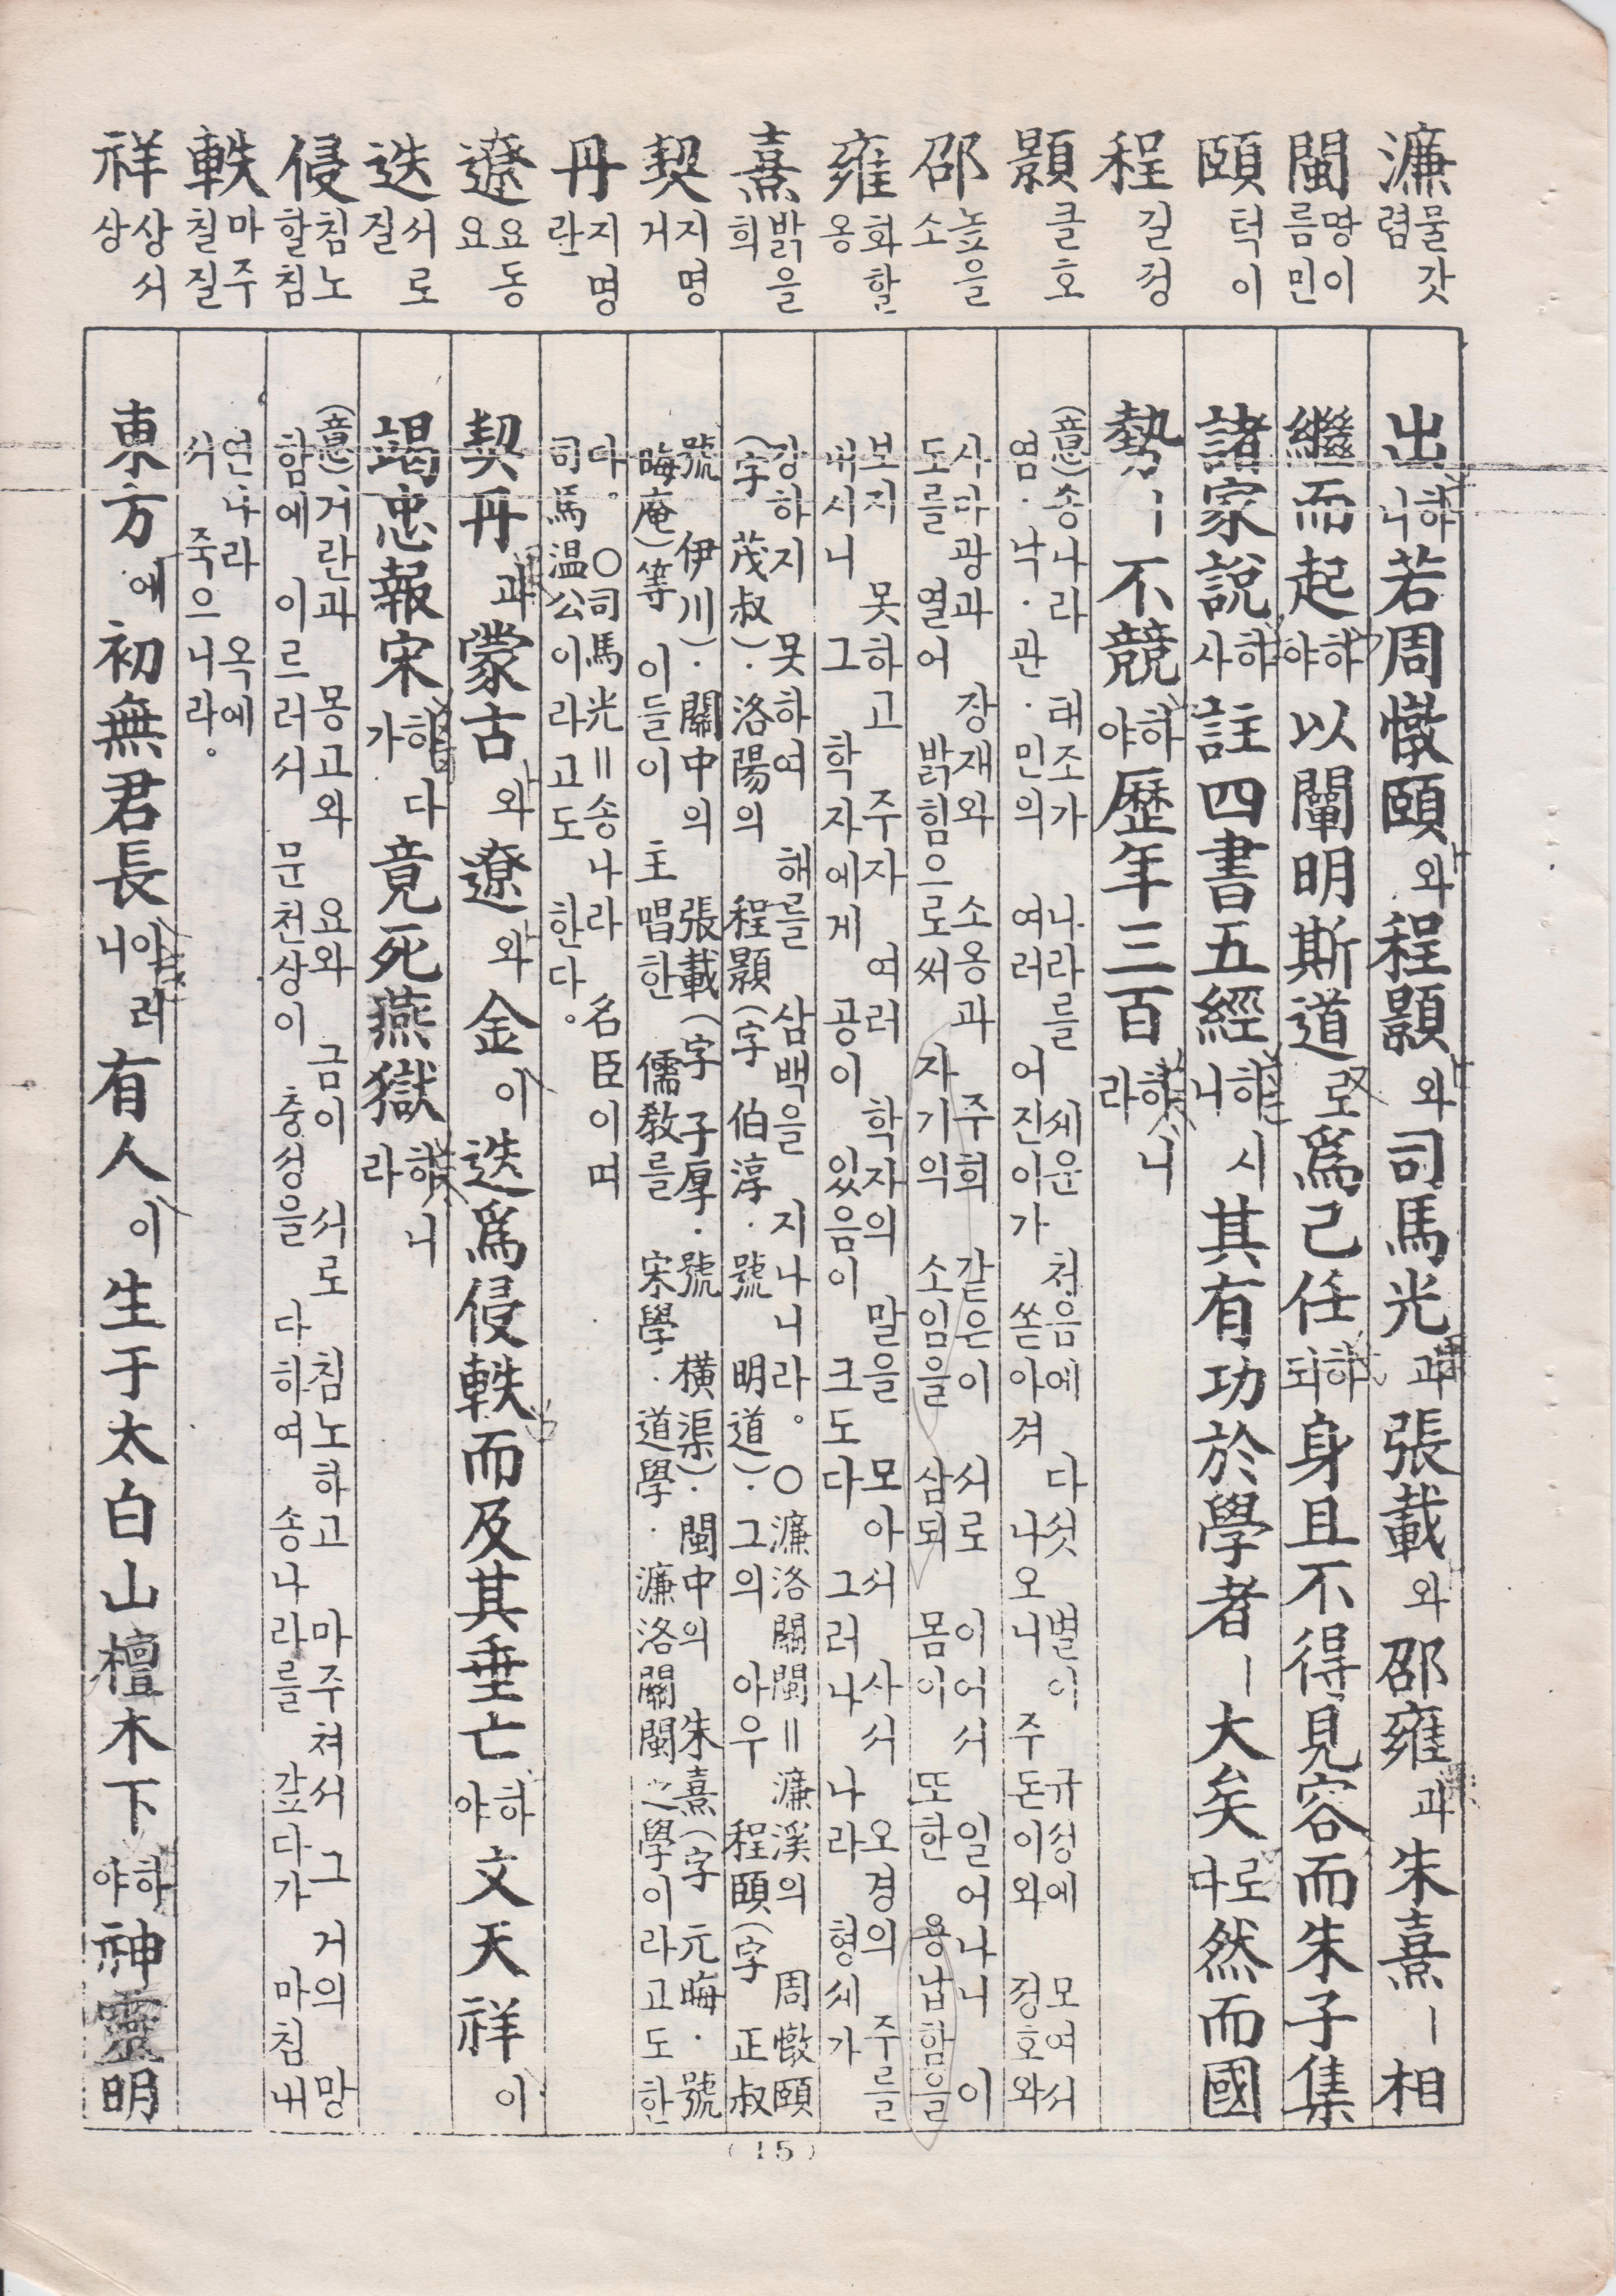 濂 물갓 렴
閩 땅이름 민
頤 턱 이
程 길 정
顥 클 호
邵 높을 소
雍 화할 옹
熹 밝을 희
契 지명 거
丹 지명 란
遼 요동 요
迭 서로 질
侵 침노할 침
軼 마주칠 질
祥 상서 상
出하니 若周憞頤와 程顥와 司馬光과 張載와 邵雍과 朱熹ㅣ 相
繼而起하야 以闡明斯道로 爲己任하되 身且不得見容而朱子集
諸家說하사 註四書五經하시니 其有功於學者ㅣ 大矣로다 然而國
勢ㅣ 不競하야 歷年三百하니라
(意)송나라 태조가 나라를 세운 처음에 다섯 별이 규성에 모여서
염·낙·관·민의 여러 어진이가 쏟아져 나오니 주돈이와 정호와
사마광과 장재와 소옹과 주희 같은이 서로 이어서 일어나니 이
도를 열어 밝힘으로써 자기의 소임을 삼되 몸이 또한 용납함을
보지 못하고 주자 여러 학자의 말을 모아서 사서 오경의 주를
내시니 그 학자에게 공이 있음이 크도다 그러나 나라 형세가
강하지 못하여 해를 삼백을 지나니라。 ○濂洛關閩=濂溪의 周憞頤
(字 茂叔)·洛陽의 程顥(字 伯淳·號 明道)·그의 아우 程頤(字 正叔
號 伊川)·關中의 張載(字 子厚·號 橫渠)·閩中의 朱熹(字 元晦·號
晦庵)等 이들이 主唱한 儒敎를 宋學·道學·濂洛關閩之學이라고도 한
다。 ○司馬光=송나라 名臣이며
司馬温公이라고도 한다。
契丹과 蒙古와 遼와 金이 迭爲侵軼而及其垂亡하야 文天祥이
竭忠報宋하다가 竟死燕獄하니라
(意)거란과 몽고와 요와 금이 서로 침노하고 마주쳐서 그 거의 망
함에 이르러서 문천상이 충성을 다하여 송나라를 갚다가 마침내
연나라 옥에
서 죽으니라。
東方에 初無君長이러니 有人이 生于太白山檀木下하야 神靈明
(15)